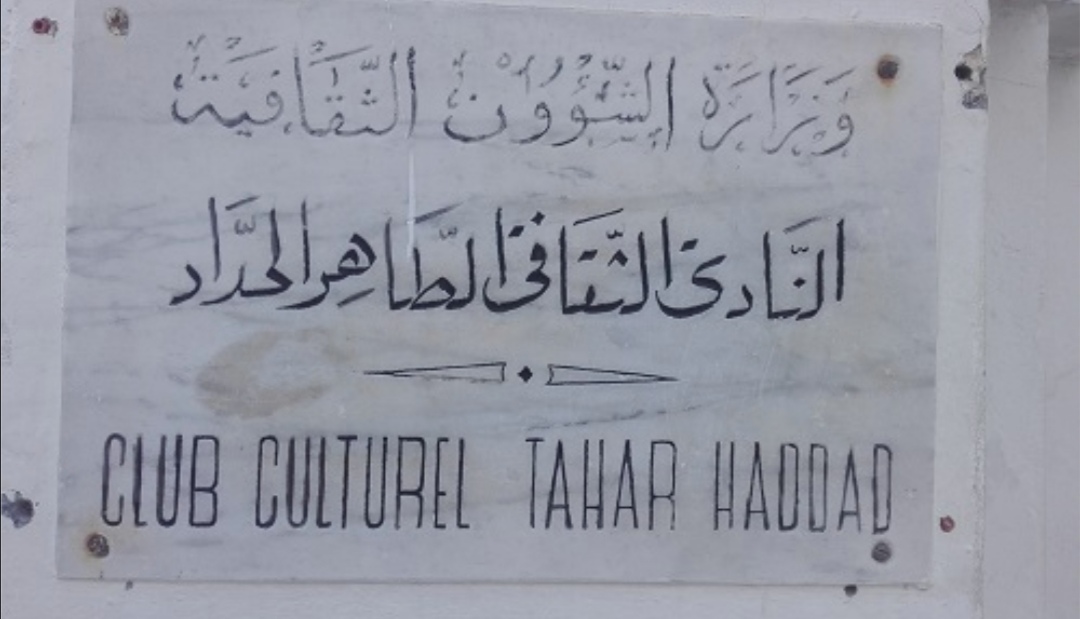 وَزَارَة الشُّؤُوُن الثَّقَافيَة
النَّادى الثَّقَافى الطَّاهِر الحَدَّاد
CLUB CULTUREL TAHAR HADDAD